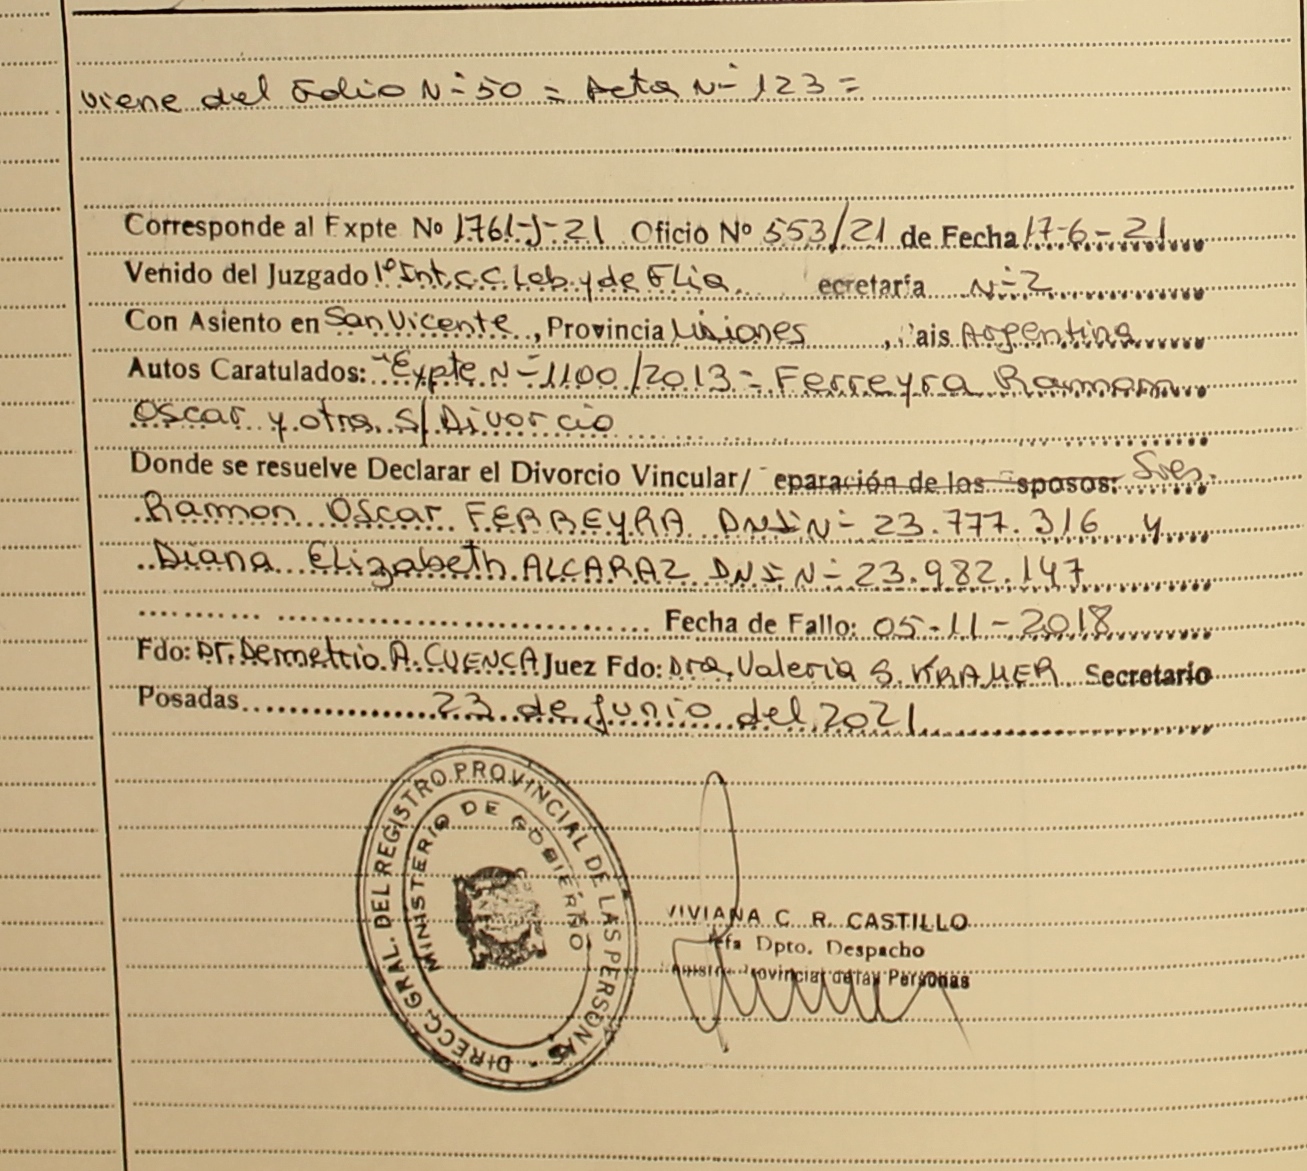 viene del Folio N= 50 = Acta N= 123 =
Corresponde al Expte No 1761-J-21 Oficio Nº 553/21 de Fecha 17-6-21
Venido del Juzgado 1º Int.C.C.Lab.y de Flia. ecretaría N=2
Con Asiento en San Vicente, Provincia Misiones, ais Argentina
Autos Caratulados: "Expte N=1100/2013 = Ferreyra Ramon
Oscar y otra S/ Divorcio
Donde se resuelve Declarar el Divorcio Vincular/ eparación de los sposos: Sres.
Ramon Oscar FERREYRA DNI N= 23.777.316 y
Diana Elizabeth ALCARAZ DNI N= 23.982.147
Fecha de Fallo: 05-11-2018
Fdo: Dr. Demetrio A. CUENCA Juez Fdo: Dra. Valeria S. KRAMER Secretario
Posadas 23 de junio del 2021
DIRECC. GRAL. DEL REGISTRO PROVINCIAL DE LAS PERSONAS
MINISTERIO DE GOBIERNO
VIVIANA C. R. CASTILLO
Jefa Dpto. Despacho
Provincial de las Personas